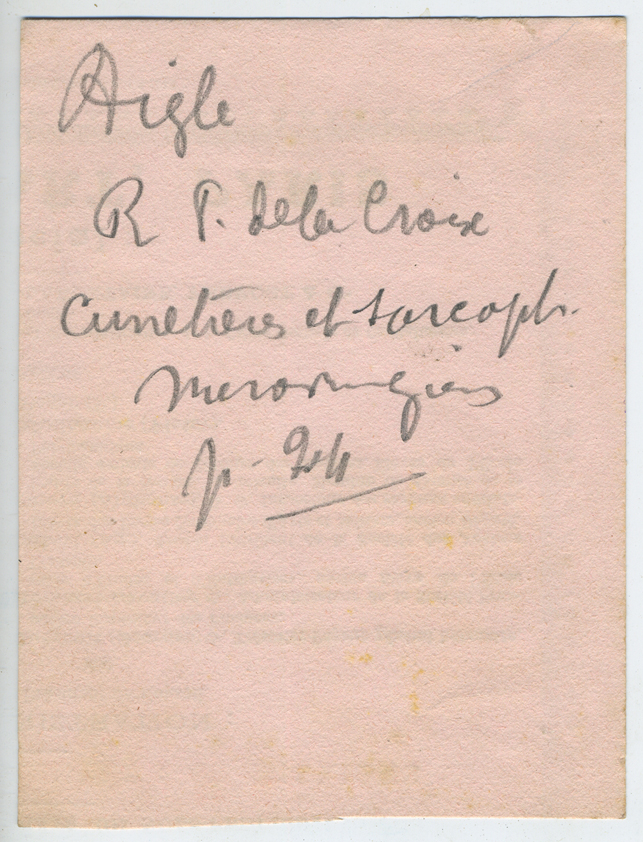 Aigle
R P. de la Croix
Cimetières et sarcoph.
Merovingiens
p. 24